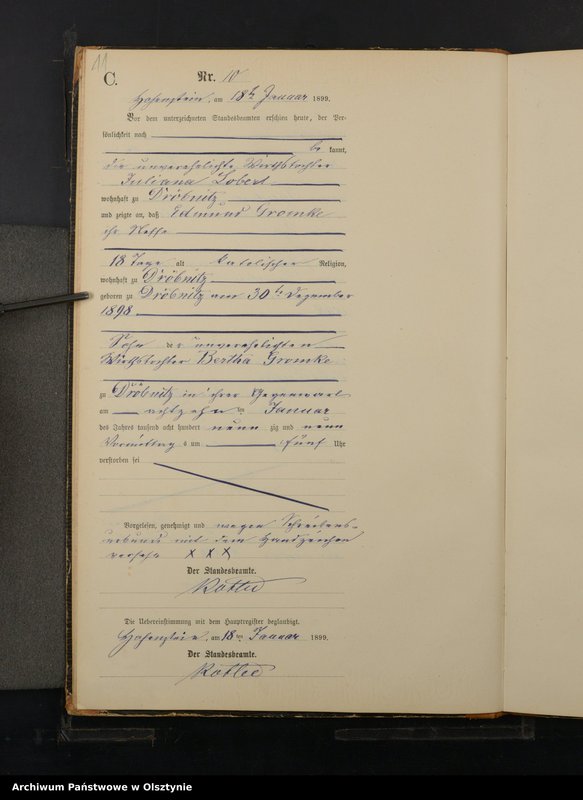 11
C.
Nr. 10
Hohenstein, am 18ten Januar 1899.
Vor dem unterzeichneten Standesbeamten erschien heute, der Per-
sönlichkeit nach
be kannt,
die unverehelichte Wirthstochter
Juliana Lobert
wohnhaft zu Dröbnitz
und zeigte an, daß Edmund Gromke
ihr Neffe
18 Tage alt katolischer Religion,
wohnhaft zu Dröbnitz
geboren zu Dröbnitz am 30ten Dezember
1898.
Sohn der unverehelichten
Wirthstochter Bertha Gromke
zu Dröbnitz in ihrer Gegenwart
am achtzehnten Januar
des Jahres tausend acht hundert neun zig und neun
Vormittag s um fünf Uhr
verstorben sei
Vorgelesen, genehmigt und wegen Schreibens-
unkunde mit dem Handzeichen
versehen X X X
Der Standesbeamte.
Die Uebereinstimmung mit dem Hauptregister beglaubigt.
Hohenstein, am 18ten Januar 1899.
Der Standesbeamte.
Archiwum Państwowe w Olsztynie